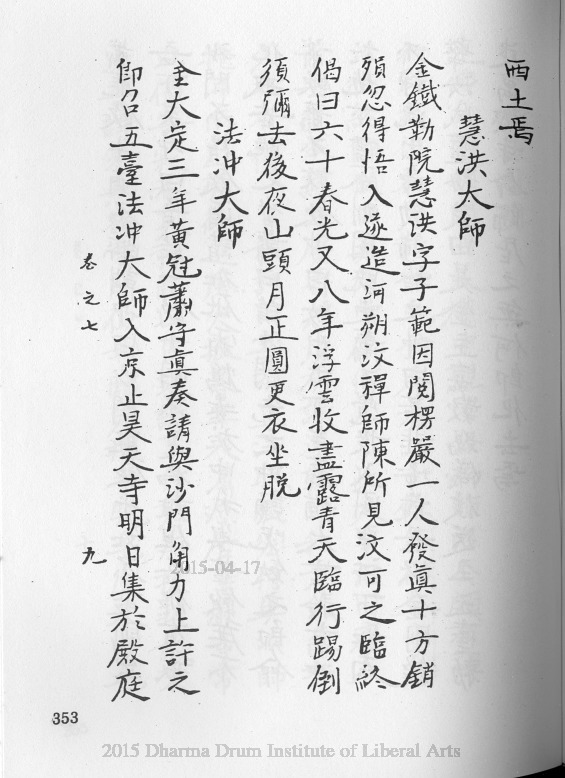 西土焉
慧洪大師
金鐵勒院慧洪字子範因閱楞嚴一人發真十方銷
殞忽得悟入遂造河朔汶禪師陳所見汶可之臨終
偈曰六十春光又八年浮雲收盡露青天臨行踢倒
須彌去後夜山頭月正圓更衣坐脫
法冲大師
金大定三年黃冠蕭守真奏請與沙門角力上許之
卽召五臺法冲大師入京止昊天寺明日集於殿庭
卷之七
九
353
2015-04-17
2015 Dharma Drum Institute of Liberal Arts